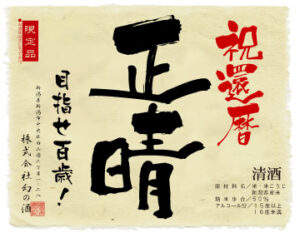 祝還暦
正晴
目指せ百歳!
限定品
株式会社幻の酒
清酒
原材料名/米・米こうじ
新潟県産米
精米歩合/50%
アルコール分/15度以上
16度未満